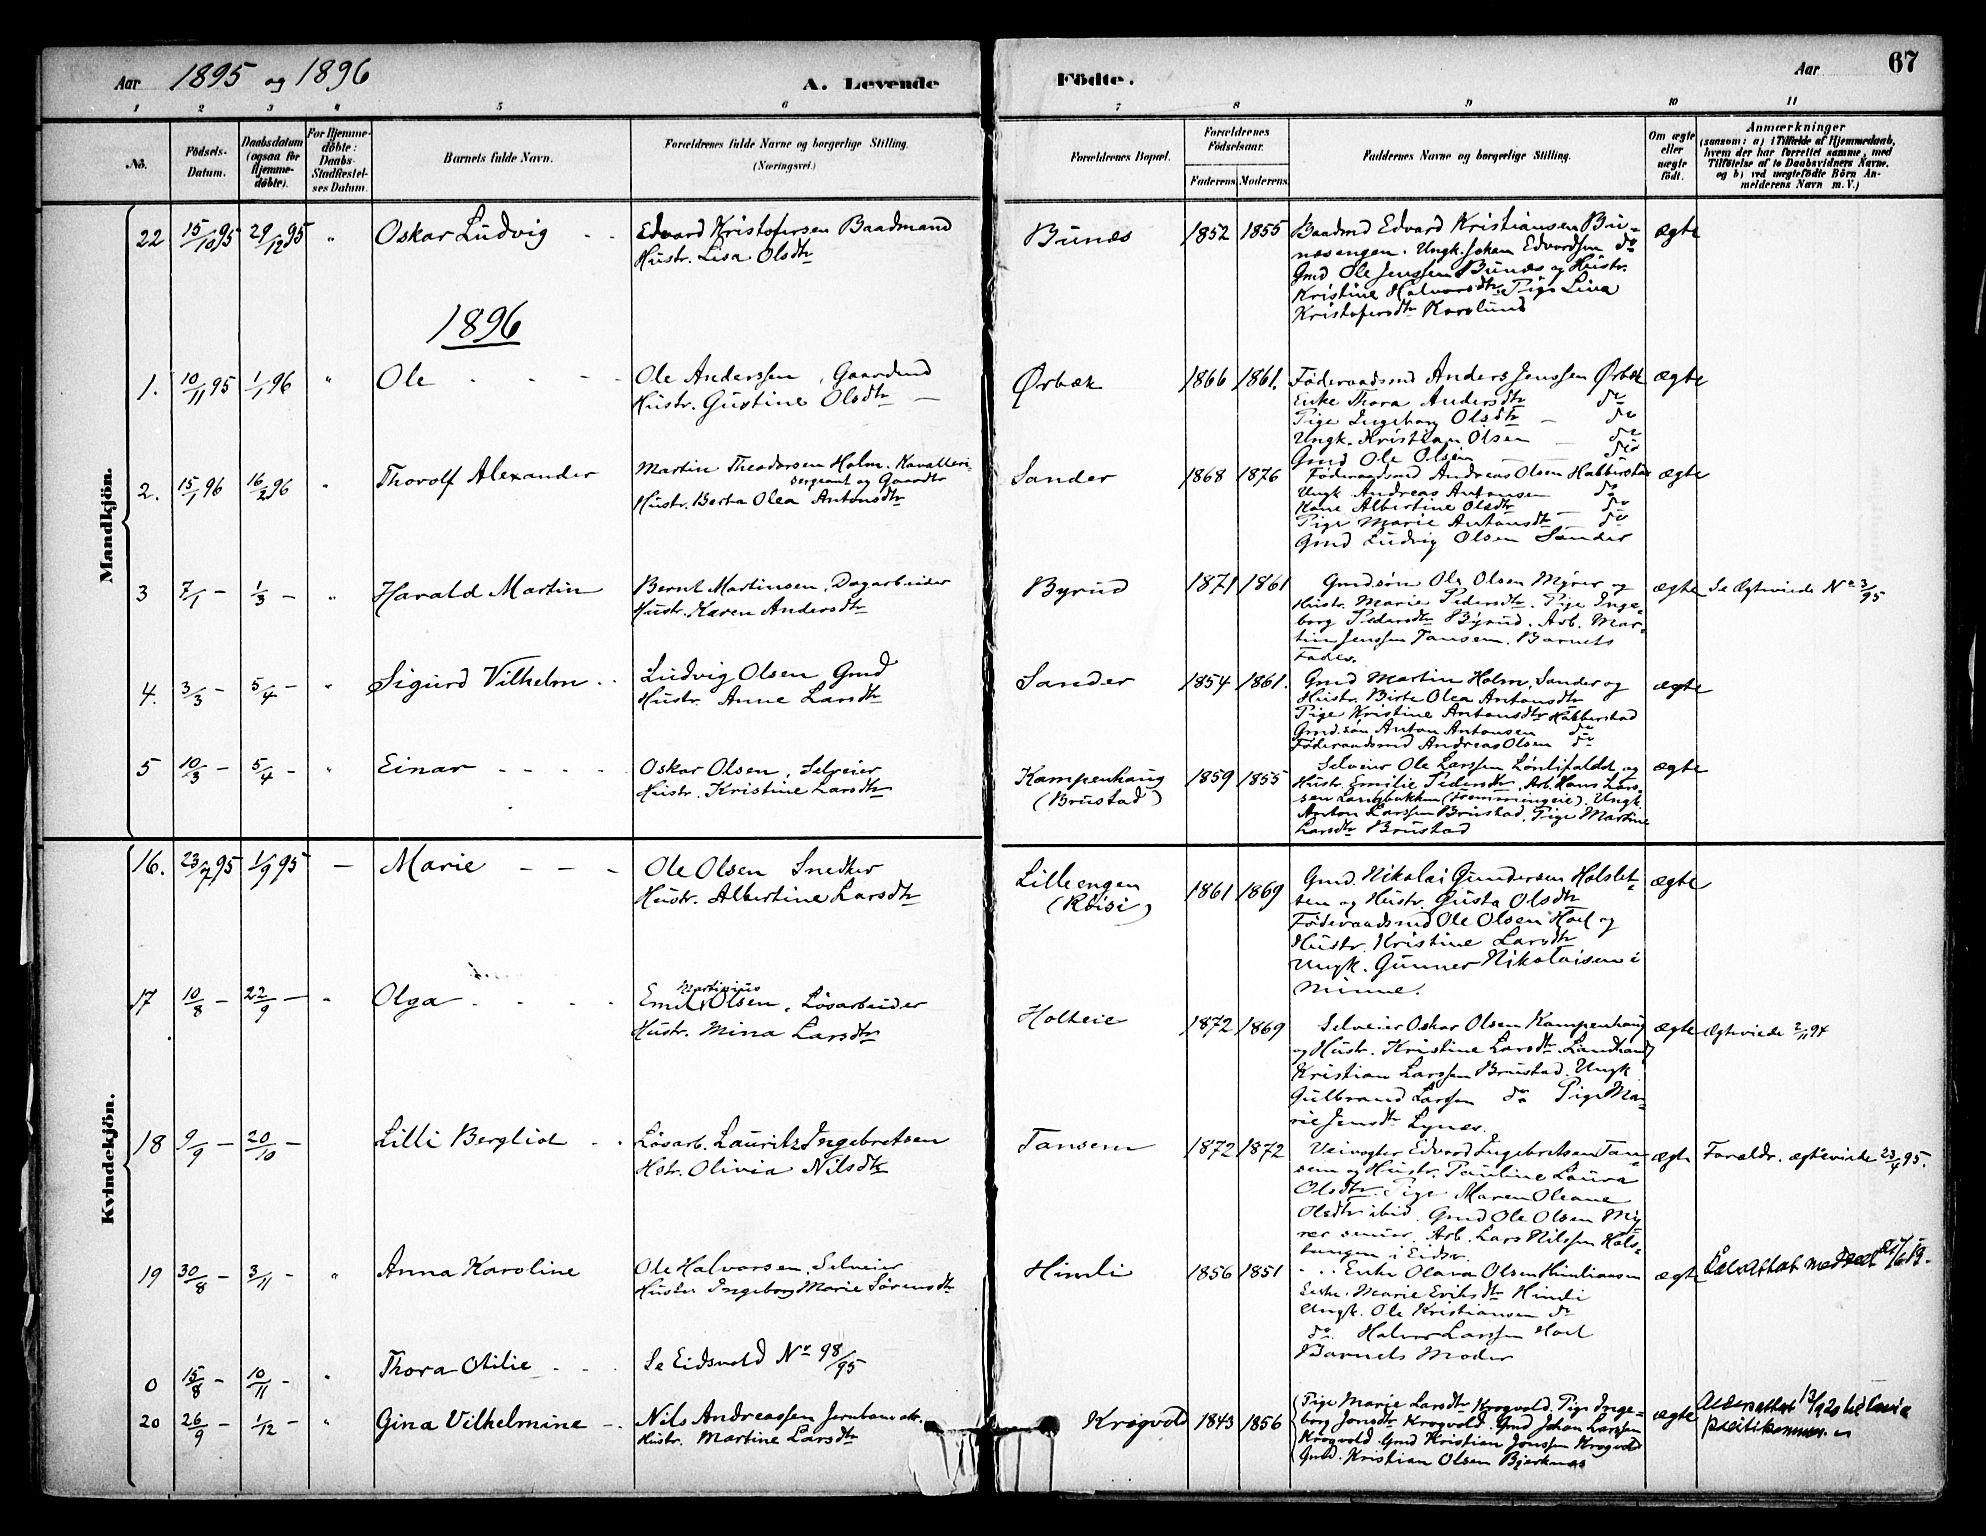 Aar 1895 og 1896 A. Levende Födte. Aar 67
1 2 3 4 5 6 7 8 9 10 11
No. Födsels-Datum. Daabsdatum (ogsaa for Hjemmedöbte). For Hjemmedöbte: Daabs-Stadfæstelses Datum. Barnets fulde Navn. Forældrenes fulde Navne og borgerlige Stilling. (Næringsvei.) Forældrenes Bopæl. Forældrenes Födselsaar. Faderens. Moderens. Faddernes Navne og borgerlige Stilling. Om ægte eller uægte födt. Anmærkninger (saasom: a) i Tilfælde af Hjemmedaab, hvem der har forrettet samme, med Tilföielse af to Daabsvidners Navne. og b) ved uægtefödte Börn Anmelderens Navn m. V.)
Mandkjön.
22 15/10 95 29/12 95 " Oskar Ludvig - - Edvard Kristofersen Baadmand
Hustr. Lisa Olsdtr
Bunæs 1852 1855 Baadmd Edvard Kristiansen Bu-
næsengen. Ungk. Johan Edvardsen do
Gmd Ole Jenssen Bunæs og Hustr.
Kristine Halvorsdtr. Pige Lina
Kristofersdtr Karslund
ægte
1896
1. 10/11 95 1/1 96 " Ole - - - - Ole Anderssen, Gaardmd
Hustr. Gustine Olsdtr
Ørbæk 1866 1861. Föderaadsmd Anders Jenssen Ørbæk
Enke Thora Andersdtr do
Pige Ingeborg Olsdtr - do
Ungk. Kristian Olsen - do
Gmd Ole Olsen - do
ægte
2. 15/1 96 16/2 96 " Thorolf Alexander Martin Theodorsen Holm. Kavalleri-
sergeant og Gaardbr
Hustr. Berta Olea Antonsdtr
Sander 1868 1876 Föderaadsmd Andreas Olsen Habberstad
Ungk Andreas Antonsen do
Kone Albertine Olsdtr - do
Pige Marie Antonsdtr - do
Gmd Ludvig Olsen Sander
ægte
3 7/1 - 1/3 - " Harald Martin Bernt Martinsen, Dagarbeider
Hustr. Karen Andersdtr
Byrud 1871 1861 Gmdsøn Ole Olsen Myrer og
Hustr. Marie Pedersdtr. Pige Inge-
borg Pedersdtr Byrud. Arb. Mar-
tin Jenssen Tansem. Barnets
Fader.
ægte Se Ægteviede No 3/95
4. 3/3 - 5/4 - " Sigurd Vilhelm - - Ludvig Olsen Gmd
Hustr. Anne Larsdtr
Sander 1854 1861. Gmd Martin Holm, Sander og
Hustr. Birte Olea Antonsdtr
Pige Kristine Antonsdtr Habberstad
Gmdsøn Anton Antonsen do
Föderaadsmd Andreas Olsen do
ægte
5 10/3 - 5/4 - " Einar - - - - Oskar Olsen, Selveier
Hustr. Kristine Larsdtr
Kampenhaug
(Brustad)
1859 1855 Selveier Ole Larssen og
Hustr. Emilie Pedersdtr, Arb. Hans Lars-
sen Langbakken. Ungk.
Anton Larssen Brustad, Pige Martine
Larsdtr Brustad
ægte
Kvindekjön.
16. 23/7 95 1/9 95 - Marie - - - Ole Olsen Snedker
Hustr. Albertine Larsdtr
Lilleengen
(Röisi)
1861 1869 Gmd. Nikolai Gundersen Holslet-
ten og Hustr. Gusta Olsdtr
Föderaadsmd Ole Olsen Hoel og
Hustr. Kristine Larsdtr
Ungk. Gunner Nikolaisen i
Minne.
ægte
17 10/8 - 22/9 - " Olga - - - - Emil Martinius Olsen, Løsarbeider
Hustr. Mina Larsdtr
Holteie 1872 1869 Selveier Oskar Olsen Kampenhaug
og Hustr. Kristine Larsdtr. Landhandl
Kristian Larssen Brustad. Ungk
Gulbrand Larssen do Pige Ma-
rie Jensdtr Lynæs.
ægte Ægteviede 2/11 94
18 9/9 - 20/10 - Lilli Bergliot - - Løsarb. Lauritz Ingebretsen
Hstr. Olivia Nilsdtr
Tansem 1872 1872 Veivogter Edvard Ingebretsen Tan-
sem og Hustr. Pauline Laura
Olsdtr. Pige Maren Oleane
Olsdtr ibid. Gmd Ole Olsen My-
rer senior. Arb. Lars Nilssen Hols-
tangen i Eidsv.
ægte Forældr. ægteviede 23/4 95.
19 30/8 - 3/11 - " Anna Karoline Ole Halvorsen, Selveier
Hustr Ingeborg Marie Sörensdtr
Himli 1856 1851 Enke Olava Olsen
Enke. Marie Eriksdtr Himli
Ungk. Ole Kristiansen do
do. Halvor Larssen Hoel
Barnets Moder
ægte
0 15/8 - 10/11 - " Thora Otilie - - - Se Eidsvold No 98/95
20 26/9 - 1/12 - " Gina Vilhelmine - - Nils Andreassen
Hustr. Martine Larsdtr
Krogvold 1843 1856 Pige Marie Larsdtr Krogvold. Pige Inge-
borg Jonsdtr Krogvold. Gmd Johan Larssen
Krogvold Gmd Kristian Jonssen Krogvold
Gmd. Kristian Olsen Bjerknæs
ægte